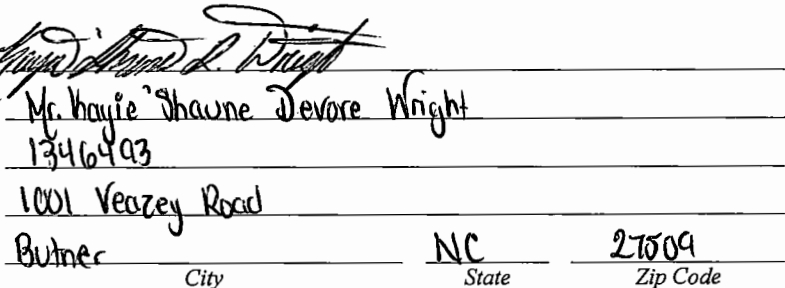 Kayie'Shaune D. Wright
Mr. Kayie'Shaune Devore Wright
1346493
1001 Veazey Road
Butner NC 27509
City State Zip Code